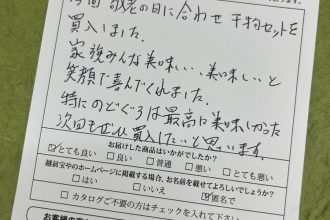 敬老の日に合わせ干物セットを
買入しました。
家族みんな美味しい、美味しいと
笑顔で喜んでくれました。
特にのどぐろは最高に美味しかった
次回もぜひ買入したいと思います。
お届けした商品はいかがでしたか?
☑とても良い □良い □普通 □悪い □とても悪い
越前宝やのホームページに掲載する場合、お名前を載せてよろしいでしょうか?
□はい □いいえ ☑匿名で
□カタログご不要の方はチェックを入れて下さい。